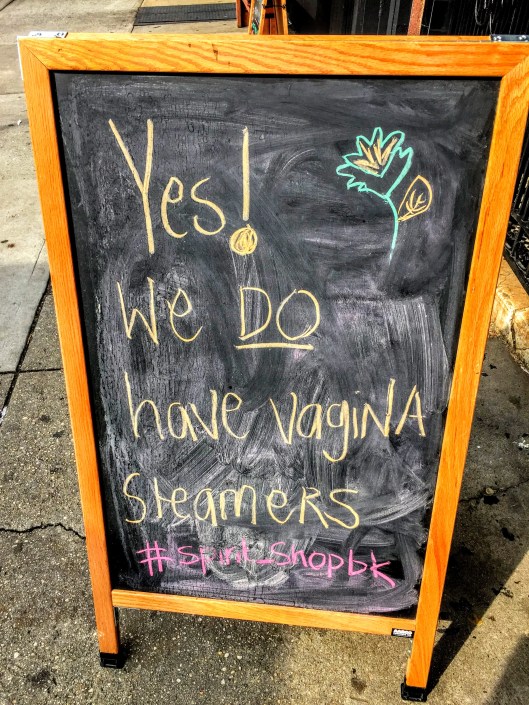 Yes!
We DO
have vagiNA
SteameRS
#Spirit_Shopbk